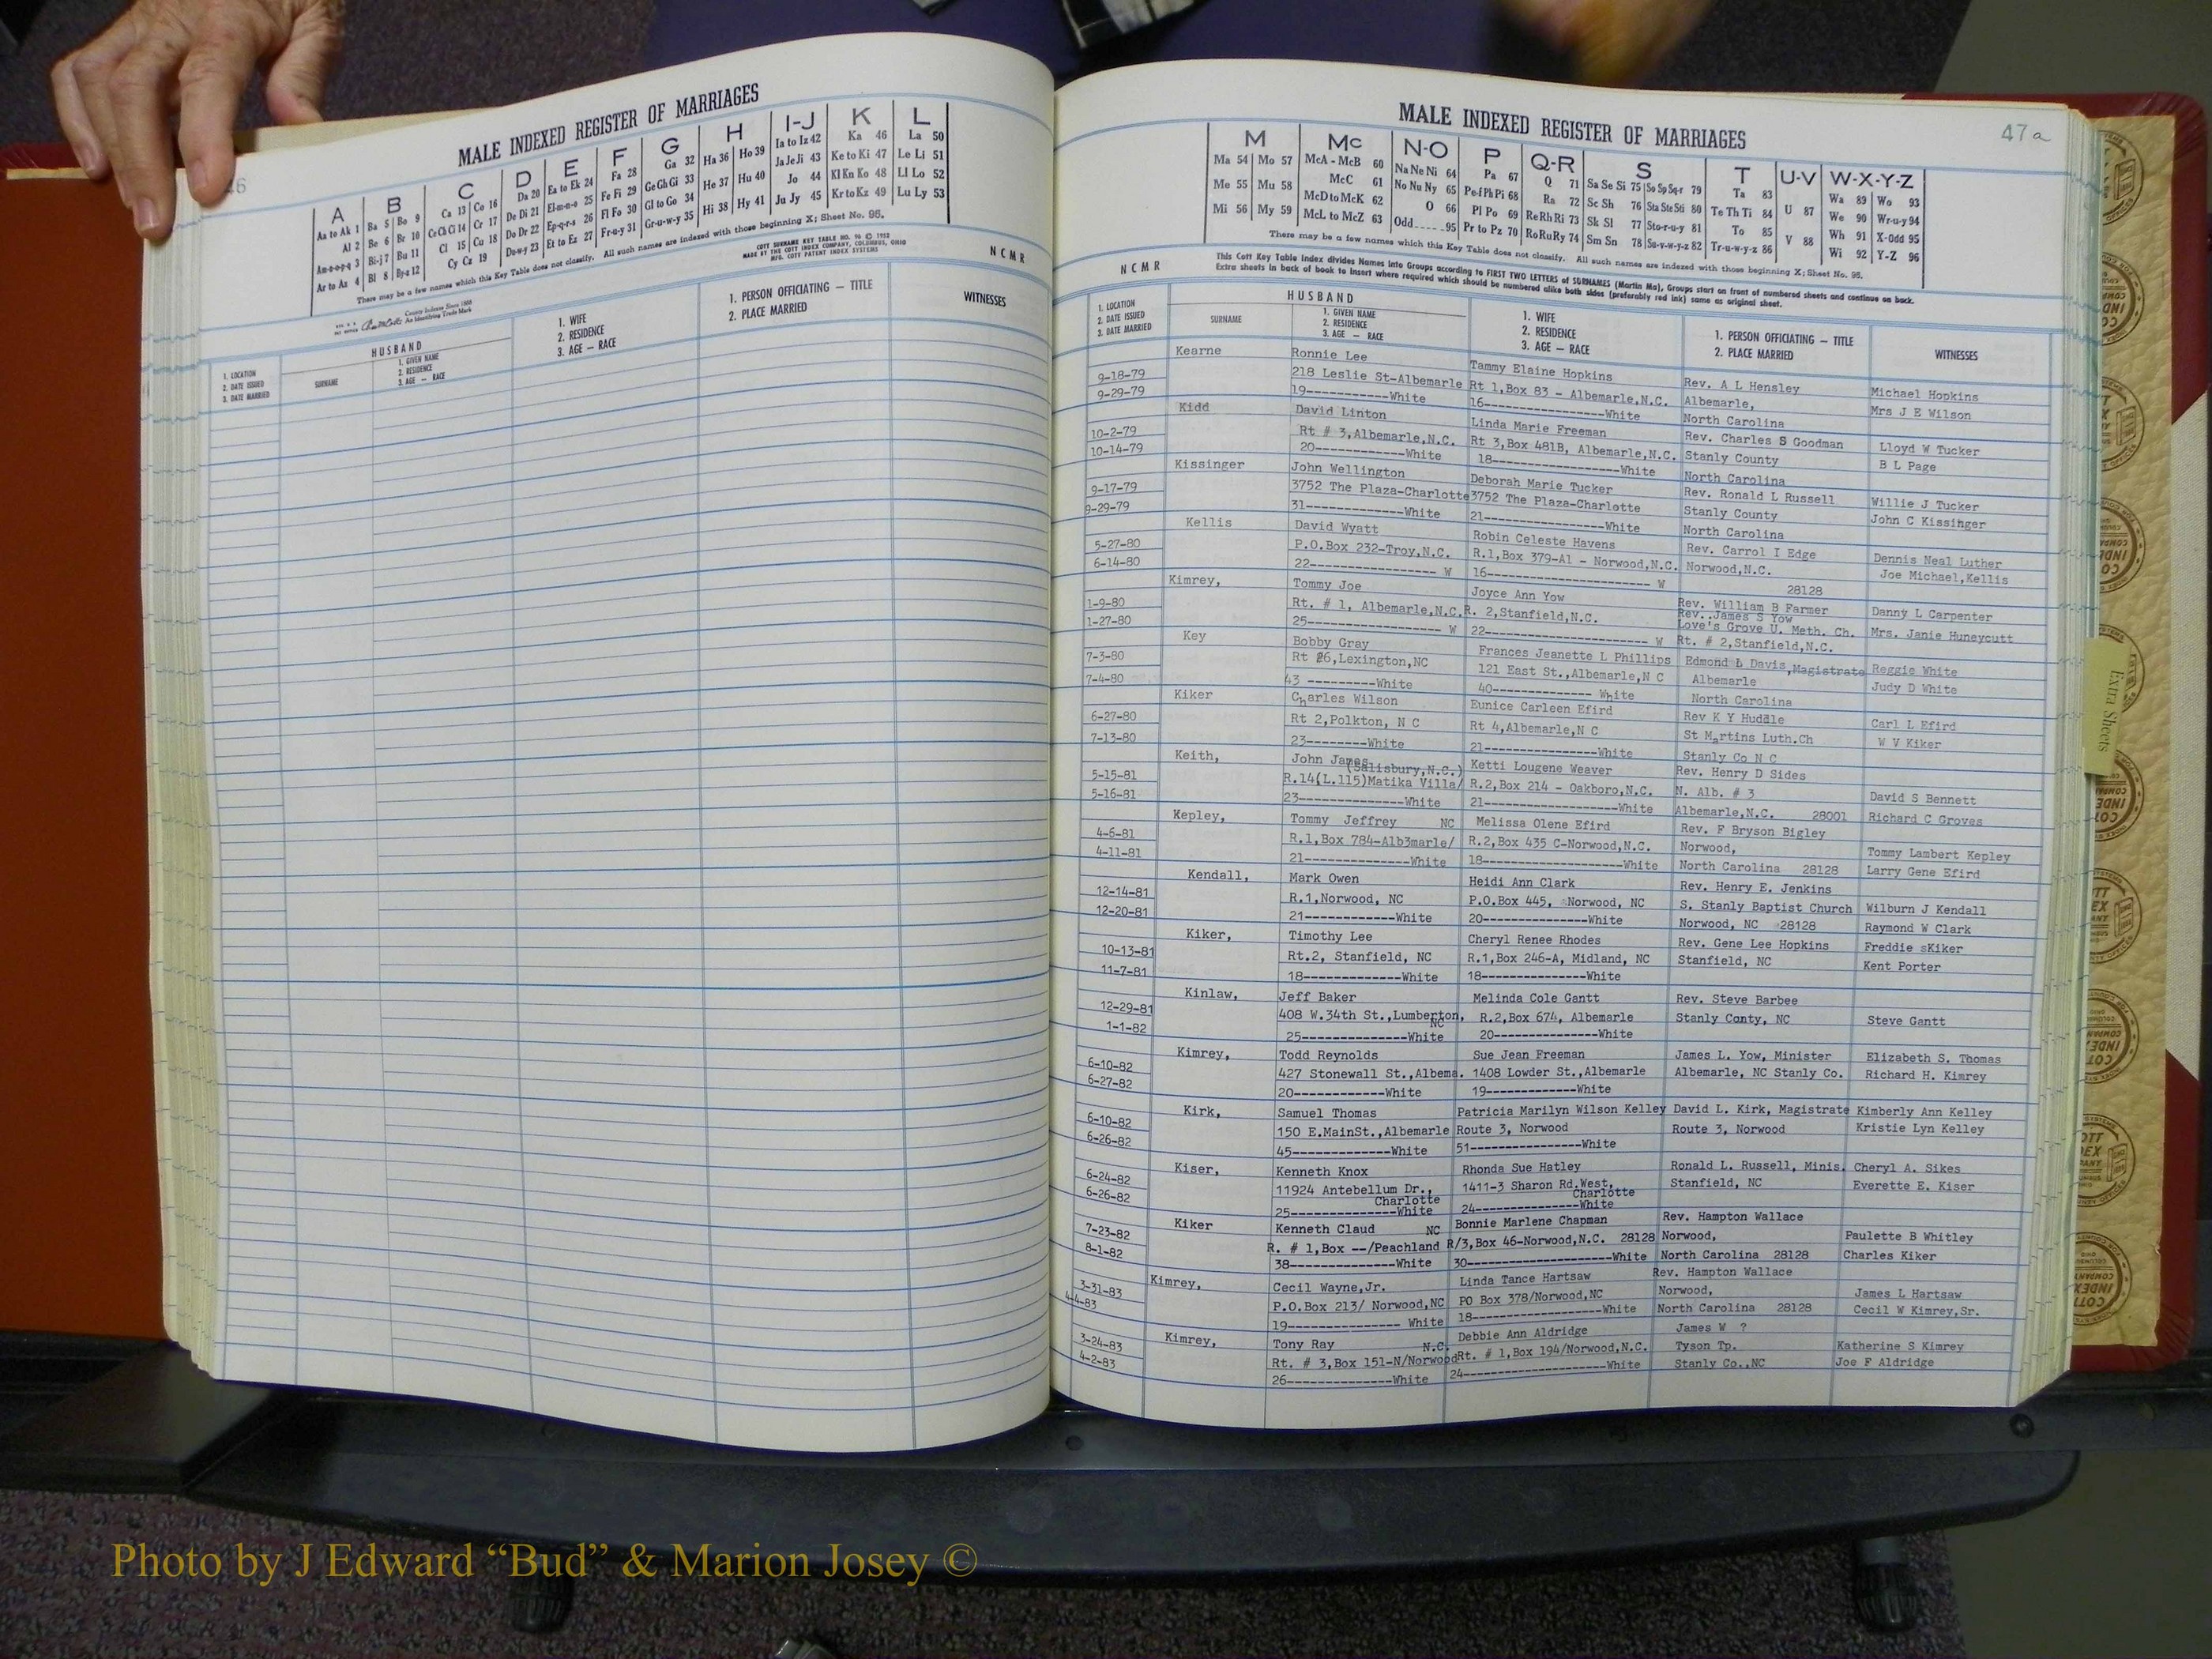 46
MALE INDEXED REGISTER OF MARRIAGES
A B C D E F G H I-J K L
Aa to Ak 1 Ba 5 Bo 9 Ca 13 Co 16 Da 20 Ea to Ek 24 Fa 28 Ga 32 Ha 36 Ho 39 Ia to Iz 42 Ka 46 La 50
Al 2 Be 6 Br 10 Ce Ch Ci 14 Cr 17 De Di 21 El-m-n-o 25 Fe Fi 29 Ge Gh Gi 33 He 37 Hu 40 Ja Je Ji 43 Ke to Ki 47 Le Li 51
Am-n-o-p-q 3 Bi-j 7 Bu 11 Cl 15 Cu 18 Do Dr 22 Ep-q-r-s 26 Fl Fo 30 Gl to Go 34 Hi 38 Hy 41 Jo 44 Kl Kn Ko 48 Ll Lo 52
Ar to Az 4 Bl 8 By-z 12 Cy Cz 19 Du-w-y 23 Et to Ez 27 Fr-u-y 31 Gr-u-w-y 35 Ju Jy 45 Kr to Kz 49 Lu Ly 53
There may be a few names which this Key Table does not classify. All such names are indexed with those beginning X; Sheet No. 95.
COTT SURNAME KEY TABLE NO. 96 © 1952
MADE BY THE COTT INDEX COMPANY, COLUMBUS, OHIO
MFG. COTT PATENT INDEX SYSTEMS
County Indexes Since 1888
An Identifying Trade Mark
N C M R
1. LOCATION
2. DATE ISSUED
3. DATE MARRIED
HUSBAND
SURNAME
1. GIVEN NAME
2. RESIDENCE
3. AGE — RACE
1. WIFE
2. RESIDENCE
3. AGE — RACE
1. PERSON OFFICIATING — TITLE
2. PLACE MARRIED
WITNESSES
47a
MALE INDEXED REGISTER OF MARRIAGES
M Mc N-O P Q-R S T U-V W-X-Y-Z
Ma 54 Mo 57 McA - McB 60 Na Ne Ni 64 Pa 67 Q 71 Sa Se Si 75 So Sp Sq-r 79 Ta 83 U 87 Wa 89 Wo 93
Me 55 Mu 58 McC 61 No Nu Ny 65 Pe-f Ph Pi 68 Ra 72 Sc Sh 76 Sta Ste Sti 80 Te Th Ti 84 V 88 We 90 Wr-u-y 94
Mi 56 My 59 McD to McK 62 O 66 Pl Po 69 Re Rh Ri 73 Sk Sl 77 Sto-r-u-y 81 To 85 Wh 91 X-Odd 95
McL to McZ 63 Odd 95 Pr to Pz 70 Ro Ru Ry 74 Sm Sn 78 Su-v-w-y-z 82 Tr-u-w-y-z 86 Wi 92 Y-Z 96
There may be a few names which this Key Table does not classify. All such names are indexed with those beginning X; Sheet No. 95.
This Cott Key Table Index divides Names into Groups according to FIRST TWO LETTERS of SURNAMES (Martin Ma), Groups start on front of numbered sheets and continue on back.
Extra sheets in back of book to insert where required which should be numbered alike both sides (preferably red ink) same as original sheet.
N C M R
1. LOCATION
2. DATE ISSUED
3. DATE MARRIED
HUSBAND
SURNAME
1. GIVEN NAME
2. RESIDENCE
3. AGE — RACE
1. WIFE
2. RESIDENCE
3. AGE — RACE
1. PERSON OFFICIATING — TITLE
2. PLACE MARRIED
WITNESSES
Kearne Ronnie Lee Tammy Elaine Hopkins Rev. A L Hensley Michael Hopkins
9-18-79 218 Leslie St-Albemarle Rt 1,Box 83 - Albemarle,N.C. Albemarle, Mrs J E Wilson
9-29-79 19-----------White 16-----------------White North Carolina
Kidd David Linton Linda Marie Freeman Rev. Charles S Goodman Lloyd W Tucker
10-2-79 Rt # 3,Albemarle,N.C. Rt 3,Box 481B, Albemarle,N.C. Stanly County B L Page
10-14-79 20------------White 18----------------White North Carolina
Kissinger John Wellington Deborah Marie Tucker Rev. Ronald L Russell Willie J Tucker
9-17-79 3752 The Plaza-Charlotte 3752 The Plaza-Charlotte Stanly County John C Kissinger
9-29-79 31------------White 21-----------------White North Carolina
Kellis David Wyatt Robin Celeste Havens Rev. Carrol I Edge Dennis Neal Luther
5-27-80 P.O.Box 232-Troy,N.C. R.1,Box 379-A1 - Norwood,N.C. Norwood,N.C. Joe Michael,Kellis
6-14-80 22---------------- W 16-------------------- W 28128
Kimrey, Tommy Joe Joyce Ann Yow Rev. William B Farmer Danny L Carpenter
Rev. James S Yow
1-9-80 Rt. # 1, Albemarle,N.C. R. 2,Stanfield,N.C. Love's Grove U. Meth. Ch. Mrs. Janie Huneycutt
1-27-80 25---------------- W 22-------------------- W Rt. # 2,Stanfield,N.C.
Key Bobby Gray Frances Jeanette L Phillips Edmond L Davis,Magistrate Reggie White
7-3-80 Rt 26,Lexington,NC 121 East St.,Albemarle,N C Albemarle Judy D White
7-4-80 43 ---------White 40------------ White North Carolina
Kiker Charles Wilson Eunice Carleen Efird Rev K Y Huddle Carl L Efird
6-27-80 Rt 2,Polkton, N C Rt 4,Albemarle,N C St Martins Luth.Ch W V Kiker
7-13-80 23--------White 21---------------White Stanly Co N C
Keith, John James Ketti Lougene Weaver Rev. Henry D Sides
(Salisbury,N.C.)
5-15-81 R.14(L.115)Matika Villa/ R.2,Box 214 - Oakboro,N.C. N. Alb. # 3 David S Bennett
5-16-81 23--------------White 21------------------White Albemarle,N.C. 28001 Richard C Groves
Kepley, Tommy Jeffrey NC Melissa Olene Efird Rev. F Bryson Bigley
4-6-81 R.1,Box 784-Alb3marle/ R.2,Box 435 C-Norwood,N.C. Norwood, Tommy Lambert Kepley
4-11-81 21--------------White 18-------------------White North Carolina 28128 Larry Gene Efird
Kendall, Mark Owen Heidi Ann Clark Rev. Henry E. Jenkins
12-14-81 R.1,Norwood, NC P.O.Box 445, Norwood, NC S. Stanly Baptist Church Wilburn J Kendall
12-20-81 21------------White 20-------------White Norwood, NC 28128 Raymond W Clark
Kiker, Timothy Lee Cheryl Renee Rhodes Rev. Gene Lee Hopkins Freddie sKiker
10-13-81 Rt.2, Stanfield, NC R.1,Box 246-A, Midland, NC Stanfield, NC Kent Porter
11-7-81 18-------------White 18-------------White
Kinlaw, Jeff Baker Melinda Cole Gantt Rev. Steve Barbee
12-29-81 408 W.34th St.,Lumberton, NC R.2,Box 674, Albemarle Stanly Conty, NC Steve Gantt
1-1-82 25--------------White 20--------------White
Kimrey, Todd Reynolds Sue Jean Freeman James L. Yow, Minister Elizabeth S. Thomas
6-10-82 427 Stonewall St.,Albema. 1408 Lowder St.,Albemarle Albemarle, NC Stanly Co. Richard H. Kimrey
6-27-82 20------------White 19-------------White
Kirk, Samuel Thomas Patricia Marilyn Wilson Kelley David L. Kirk, Magistrate Kimberly Ann Kelley
6-10-82 150 E.MainSt.,Albemarle Route 3, Norwood Route 3, Norwood Kristie Lyn Kelley
6-26-82 45-------------White 51---------------White
Kiser, Kenneth Knox Rhonda Sue Hatley Ronald L. Russell, Minis. Cheryl A. Sikes
6-24-82 11924 Antebellum Dr., Charlotte 1411-3 Sharon Rd.West, Charlotte Stanfield, NC Everette E. Kiser
6-26-82 25--------------White 24--------------White
Kiker Kenneth Claud NC Bonnie Marlene Chapman Rev. Hampton Wallace
7-23-82 R. # 1,Box --/Peachland R/3,Box 46-Norwood,N.C. 28128 Norwood, Paulette B Whitley
8-1-82 38--------------White 30-------------------White North Carolina 28128 Charles Kiker
Kimrey, Cecil Wayne,Jr. Linda Tance Hartsaw Rev. Hampton Wallace
3-31-83 P.O.Box 213/ Norwood,NC PO Box 378/Norwood,NC Norwood, James L Hartsaw
4-4-83 19-------------- White 18-------------------White North Carolina 28128 Cecil W Kimrey,Sr.
Kimrey, Tony Ray N.C. Debbie Ann Aldridge James W ?
3-24-83 Rt. # 3,Box 151-N/Norwood Rt. # 1,Box 194/Norwood,N.C. Tyson Tp. Katherine S Kimrey
4-2-83 26--------------White 24-------------------White Stanly Co.,NC Joe F Aldridge
Extra Sheets
Photo by J Edward “Bud” & Marion Josey ©